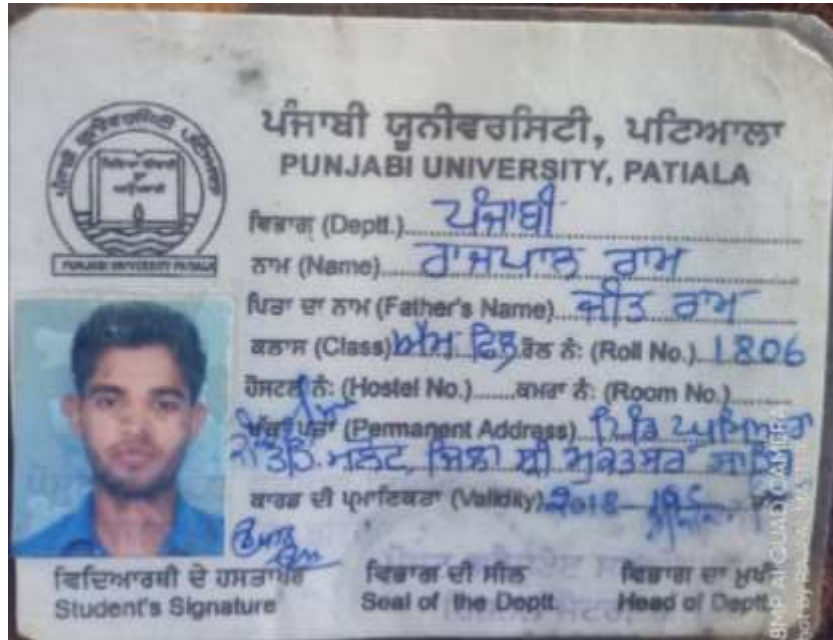 ਪੰਜਾਬੀ ਯੂਨੀਵਰਸਿਟੀ, ਪਟਿਆਲਾ
PUNJABI UNIVERSITY, PATIALA
ਪੰਜਾਬੀ ਯੂਨੀਵਰਸਿਟੀ ਪਟਿਆਲਾ
PUNJABI UNIVERSITY PATIALA
ਵਿਭਾਗ (Deptt.) ਪੰਜਾਬੀ
ਨਾਮ (Name) ਰਾਜਪਾਲ ਰਾਮ
ਪਿਤਾ ਦਾ ਨਾਮ (Father's Name) ਜੀਤ ਰਾਮ
ਕਲਾਸ (Class) ਐਮ ਫਿਲ ਰੋਲ ਨੰ: (Roll No.) 1806
ਹੋਸਟਲ ਨੰ: (Hostel No.) ਕਮਰਾ ਨੰ: (Room No.)
ਪਤਾ (Permanent Address) ਪਿੰਡ
ਮਲੋਟ, ਜਿਲਾ ਸ਼੍ਰੀ ਮੁਕਤਸਰ ਸਾਹਿਬ
ਕਾਰਡ ਦੀ ਪ੍ਰਮਾਣਿਕਤਾ (Validity) 2018-19
ਵਿਦਿਆਰਥੀ ਦੇ ਹਸਤਾਖਰ ਵਿਭਾਗ ਦੀ ਸੀਲ ਵਿਭਾਗ ਦਾ ਮੁਖੀ
Student's Signature Seal of the Deptt. Head of Deptt.
AI QUAD CAMERA